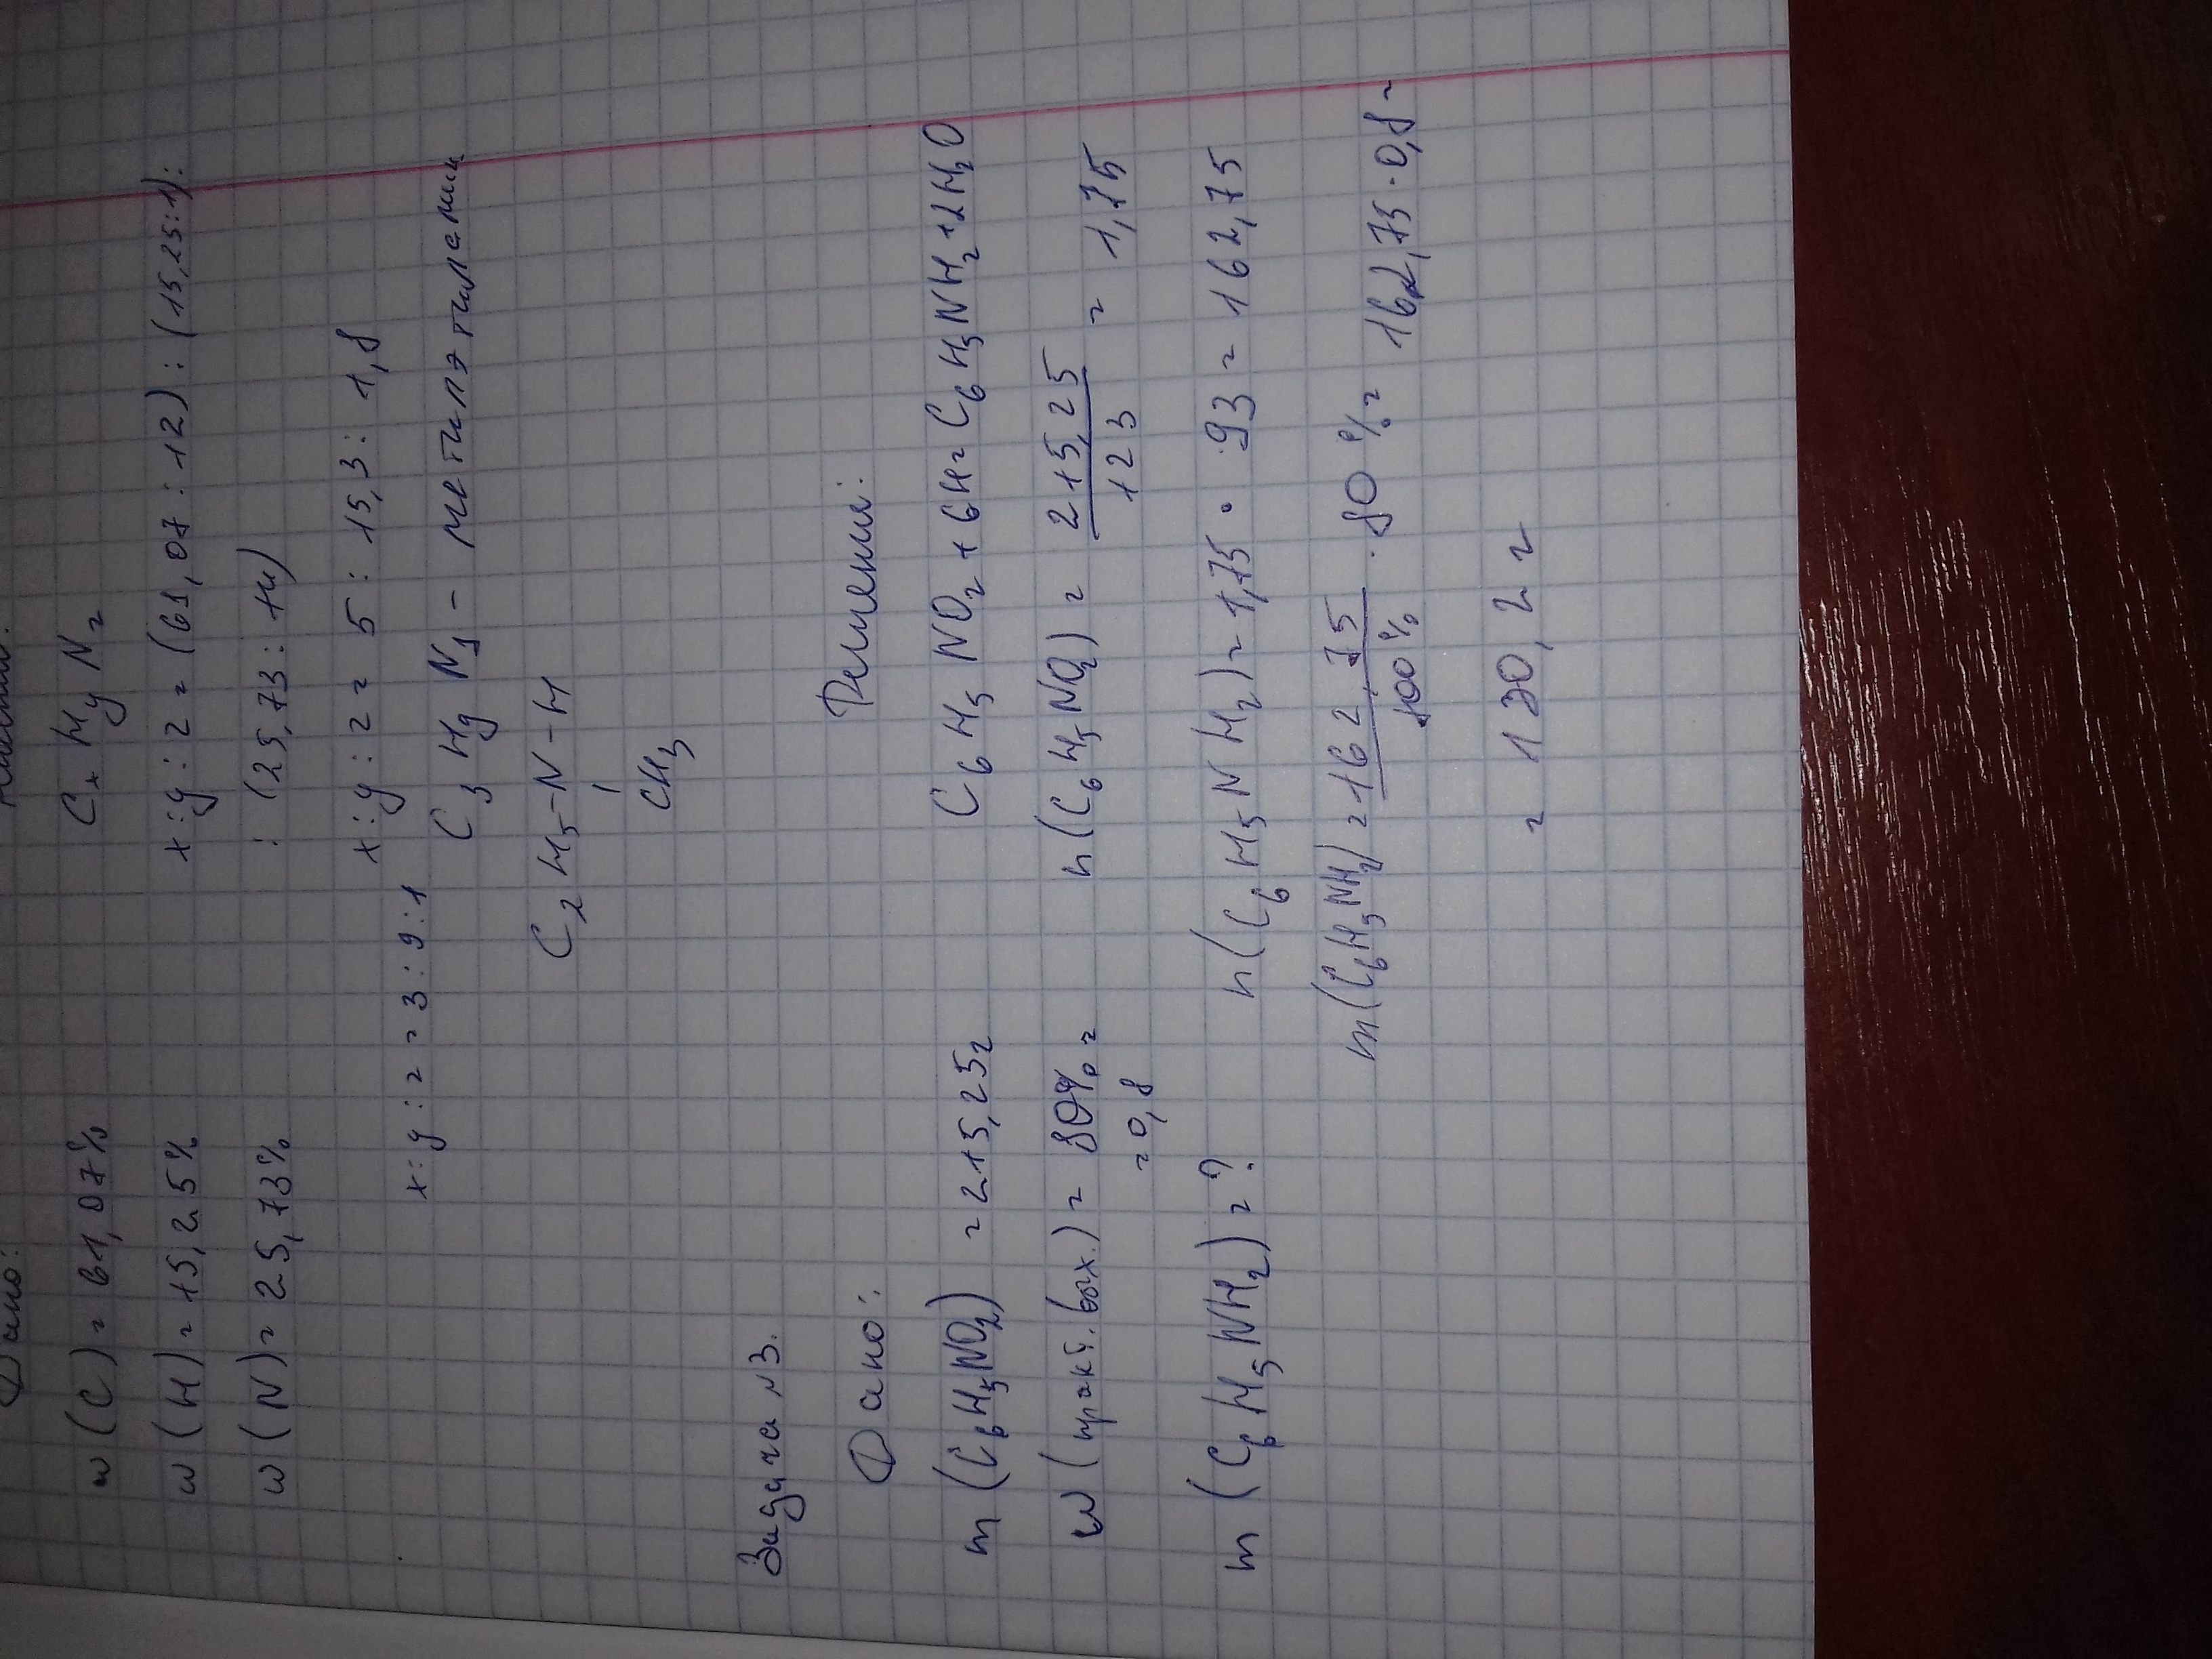 Дано:
w (C) = 61,07%
w (H) = 15,25%
w (N) = 25,73%
CxHyNz
x:y:z = (61,07:12) : (15,25:1):
: (25,73:14)
x:y:z = 5 : 15,3 : 1,8
x:y:z = 3:9:1
C3H9N1 - метилэтиламин
C2H5-N-H
CH3
Задача №3.
Дано:
m (C6H5NO2) = 215,25г
w (практ. вых.) = 80% =
= 0,8
m (C6H5NH2) = ?
Решение:
C6H5NO2 + 6H = C6H5NH2 + 2H2O
n(C6H5NO2) = 215,25/123 = 1,75
n(C6H5NH2) = 1,75 · 93 = 162,75
m(C6H5NH2) = 162,75/100% · 80% = 162,75 · 0,8 =
= 130,2 г